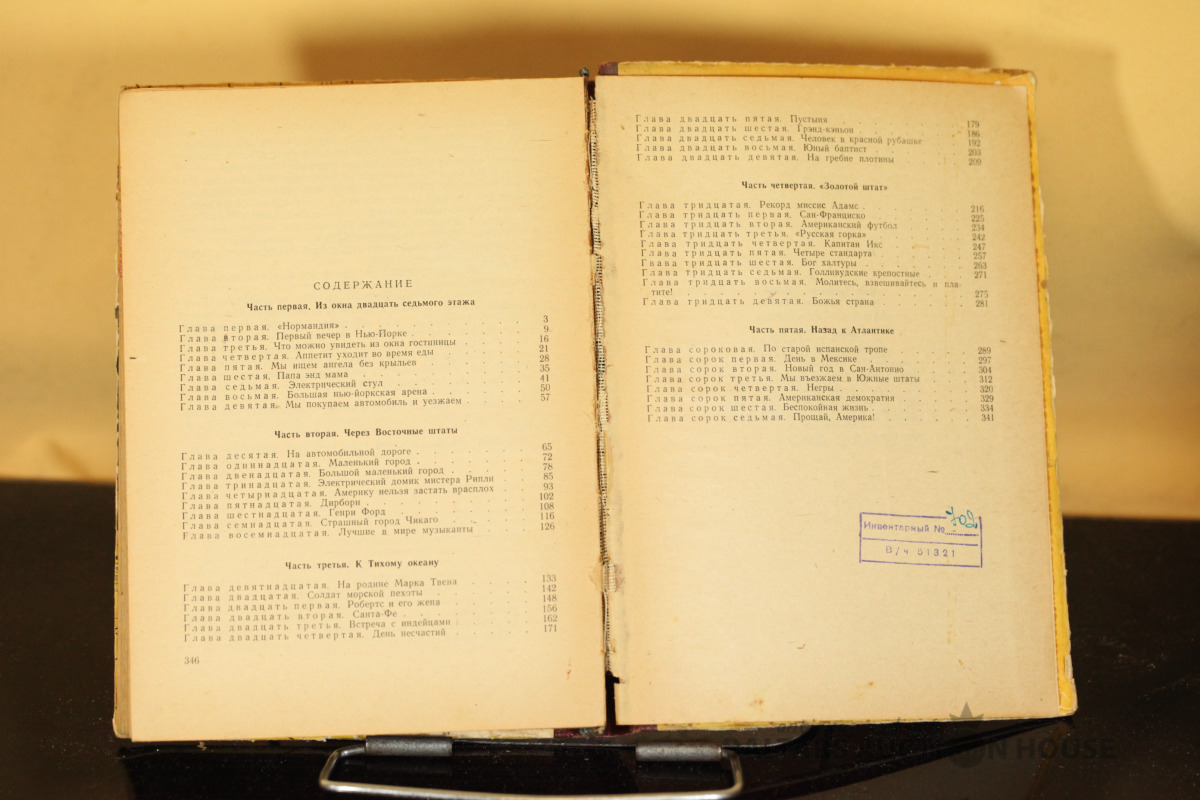 СОДЕРЖАНИЕ
Часть первая. Из окна двадцать седьмого этажа
Глава первая. «Нормандия» . . . 3
Глава вторая. Первый вечер в Нью-Йорке . . . 9
Глава третья. Что можно увидеть из окна гостиницы . . . 16
Глава четвертая. Аппетит уходит во время еды . . . 21
Глава пятая. Мы ищем ангела без крыльев . . . 28
Глава шестая. Папа энд мама . . . 35
Глава седьмая. Электрический стул . . . 41
Глава восьмая. Большая нью-йоркская арена . . . 50
Глава девятая. Мы покупаем автомобиль и уезжаем . . . 57
Часть вторая. Через Восточные штаты
Глава десятая. На автомобильной дороге . . . 65
Глава одиннадцатая. Маленький город . . . 72
Глава двенадцатая. Большой маленький город . . . 78
Глава тринадцатая. Электрический домик мистера Рипли . . . 85
Глава четырнадцатая. Америку нельзя застать врасплох . . . 93
Глава пятнадцатая. Дирборн . . . 102
Глава шестнадцатая. Генри Форд . . . 108
Глава семнадцатая. Страшный город Чикаго . . . 116
Глава восемнадцатая. Лучшие в мире музыканты . . . 126
Часть третья. К Тихому океану
Глава девятнадцатая. На родине Марка Твена . . . 133
Глава двадцатая. Солдат морской пехоты . . . 142
Глава двадцать первая. Робертс и его жена . . . 148
Глава двадцать вторая. Санта-Фе . . . 156
Глава двадцать третья. Встреча с индейцами . . . 162
Глава двадцать четвертая. День несчастий . . . 171
346
Глава двадцать пятая. Пустыня . . . 179
Глава двадцать шестая. Грэнд-кэньон . . . 186
Глава двадцать седьмая. Человек в красной рубашке . . . 192
Глава двадцать восьмая. Юный баптист . . . 203
Глава двадцать девятая. На гребне плотины . . . 209
Часть четвертая. «Золотой штат»
Глава тридцатая. Рекорд миссис Адамс . . . 216
Глава тридцать первая. Сан-Франциско . . . 225
Глава тридцать вторая. Американский футбол . . . 234
Глава тридцать третья. «Русская горка» . . . 242
Глава тридцать четвертая. Капитан Икс . . . 247
Глава тридцать пятая. Четыре стандарта . . . 257
Гвава тридцать шестая. Бог халтуры . . . 263
Глава тридцать седьмая. Голливудские крепостные . . . 271
Глава тридцать восьмая. Молитесь, взвешивайтесь и пла-
тите! . . . 275
Глава тридцать девятая. Божья страна . . . 281
Часть пятая. Назад к Атлантике
Глава сороковая. По старой испанской тропе . . . 289
Глава сорок первая. День в Мексике . . . 297
Глава сорок вторая. Новый год в Сан-Антонио . . . 304
Глава сорок третья. Мы въезжаем в Южные штаты . . . 312
Глава сорок четвертая. Негры . . . 320
Глава сорок пятая. Американская демократия . . . 329
Глава сорок шестая. Беспокойная жизнь . . . 334
Глава сорок седьмая. Прощай, Америка! . . . 341
Инвентарный № 702
В/ч 51321
HOUSE